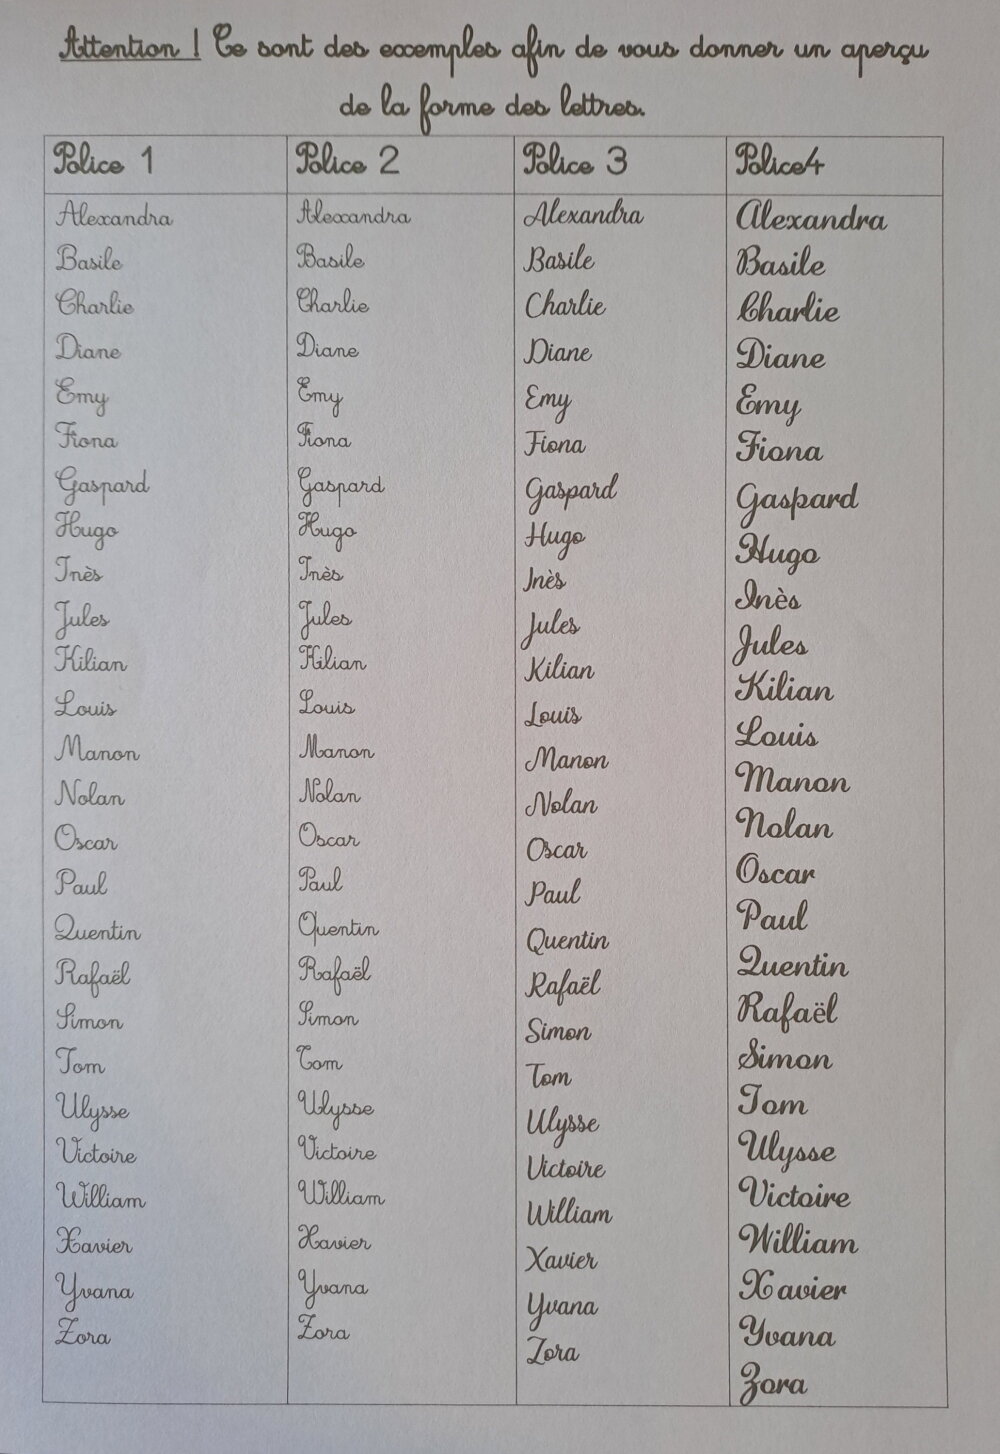 Attention ! Ce sont des exemples afin de vous donner un aperçu
de la forme des lettres.
Police 1 Police 2 Police 3 Police4
Alexandra Alexandra Alexandra Alexandra
Basile Basile Basile Basile
Charlie Charlie Charlie Charlie
Diane Diane Diane Diane
Emy Emy Emy Emy
Fiona Fiona Fiona Fiona
Gaspard Gaspard Gaspard Gaspard
Hugo Hugo Hugo Hugo
Inès Inès Inès Inès
Jules Jules Jules Jules
Kilian Kilian Kilian Kilian
Louis Louis Louis Louis
Manon Manon Manon Manon
Nolan Nolan Nolan Nolan
Oscar Oscar Oscar Oscar
Paul Paul Paul Paul
Quentin Quentin Quentin Quentin
Rafaël Rafaël Rafaël Rafaël
Simon Simon Simon Simon
Tom Tom Tom Tom
Ulysse Ulysse Ulysse Ulysse
Victoire Victoire Victoire Victoire
William William William William
Xavier Xavier Xavier Xavier
Yvana Yvana Yvana Yvana
Zora Zora Zora Zora